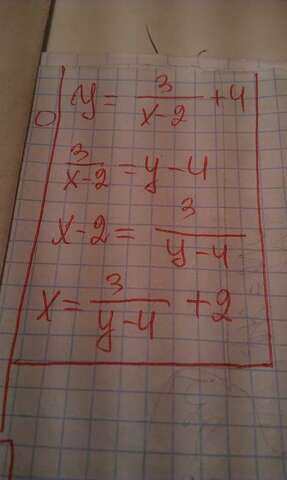 y = 3/(x-2) + 4
3/(x-2) = y - 4
x - 2 = 3/(y-4)
x = 3/(y-4) + 2